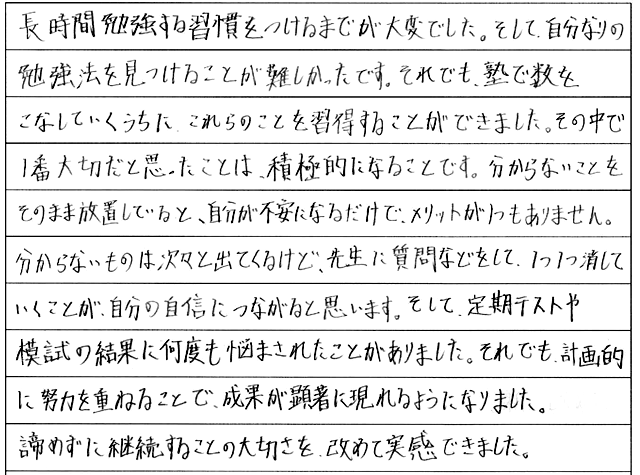 長時間勉強する習慣をつけるまでが大変でした。そして、自分なりの
勉強法を見つけることが難しかったです。それでも、塾で数を
こなしていくうちに、これらのことを習得することができました。その中で
1番大切だと思ったことは、積極的になることです。分からないことを
そのまま放置していると、自分が不安になるだけで、メリットが1つもありません。
分からないものは次々と出てくるけど、先生に質問などをして、1つ1つ消して
いくことが、自分の自信につながると思います。そして、定期テストや
模試の結果に何度も悩まされたことがありました。それでも、計画的
に努力を重ねることで、成果が顕著に現れるようになりました。
諦めずに継続することの大切さを、改めて実感できました。